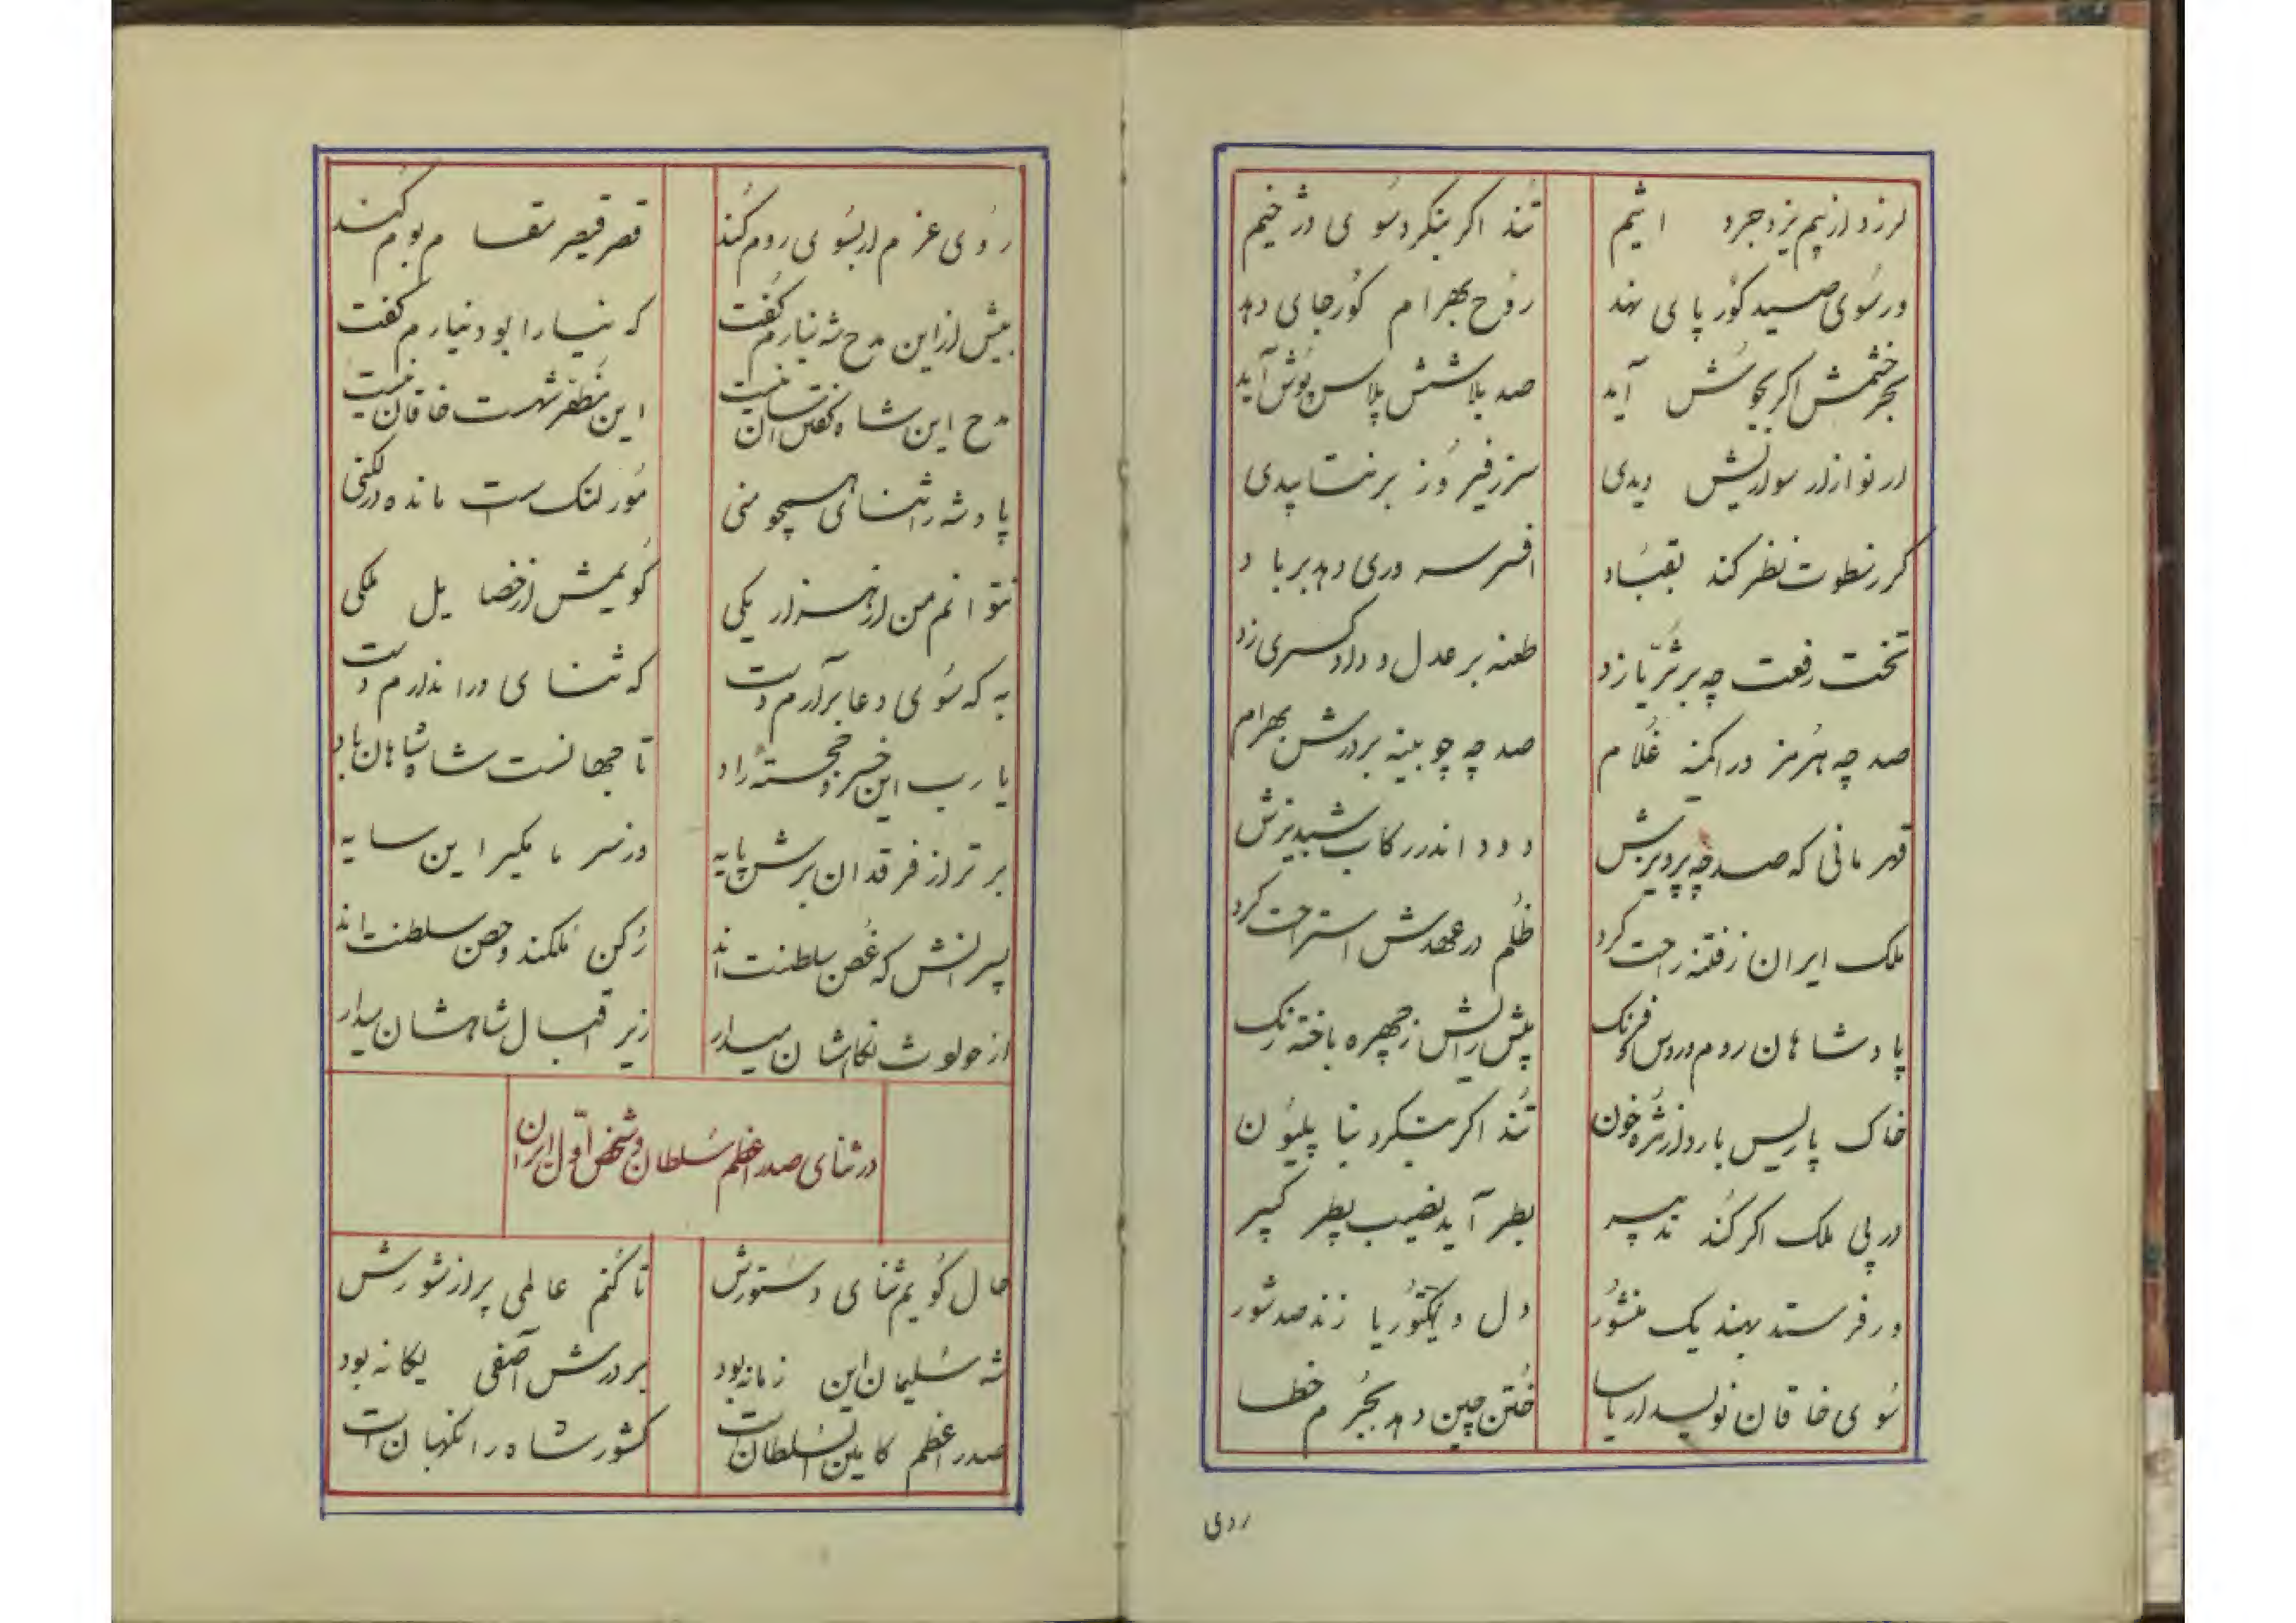 لرزد از بیم یزدجرد اثیم تند اگر بنگرد سوی دژخیم
ور سوی صید گور پای نهد روح بهرام گور جای دهد
بحر خشمش اگر بجوش آید صد بلاشش پلاس پوش آید
ار نوازد ز سوارایش دیدی سر ز فیروز برنتابیدی
گر ز سطوت نظر کند بقباد افسر سروری دهد بر باد
تخت رفعت چه بر ثریا زد طعنه بر عدل و داد کسری زد
صد چه هرمز ورا کمینه غلام صد چه چوبینه بر درش بهرام
قهرمانی که صد چه پرویزش دود اندر رکاب شبدیزش
ملک ایران ز فتنه راحت کرد ظلم در عهدش استراحت کرد
پادشاهان روم و روس و فرنگ پیش رایش ز چهره باخته رنگ
خاک پاریس بارد از مژه خون تند اگر بنگرد بناپلیون
در پی ملک اگر کند تدبیر بطر آید نصیب پطر کبیر
ور فرستد بهند یک منشور دل ویکتوریا زند صد شور
سوی خاقان نویسد ار یاسا ختن چین دهد بجرم خطا
روی
روی عزم ار بسوی روم کند قصر قیصر مقام بوم کند
بیش از این مدح شه نیارم گفت که نیارا بود نیارم گفت
مدح این شاه گفتن آسان نیست این مظفر شهست خاقان نیست
پادشه را ثنای همچو منی مور لنگ است مانده در لگنی
نتوانم من از هزار یکی گویمش از خصایل ملکی
به که سوی دعا برآرم دست که ثنای ورا ندارم دست
یا رب این خسرو خجسته نژاد تا جهانست شاه شاهان باد
برتر از فرقدان برش پایه وز سر ما مگیر این سایه
پسرانش که غصن سلطنت‌اند رکن ملکند و حصن سلطنت‌اند
از حوادث نگاهشان میدار زیر اقبال شاهشان میدار
در ثنای صدر اعظم سلطان و شخص اول ایران
حال گویم ثنای دستورش تا کنم عالمی پر از شورش
شه سلیمان این زمانه بود بر درش آصفی یگانه بود
صدر اعظم کامین السلطان است کشور شاه را نگهبان است